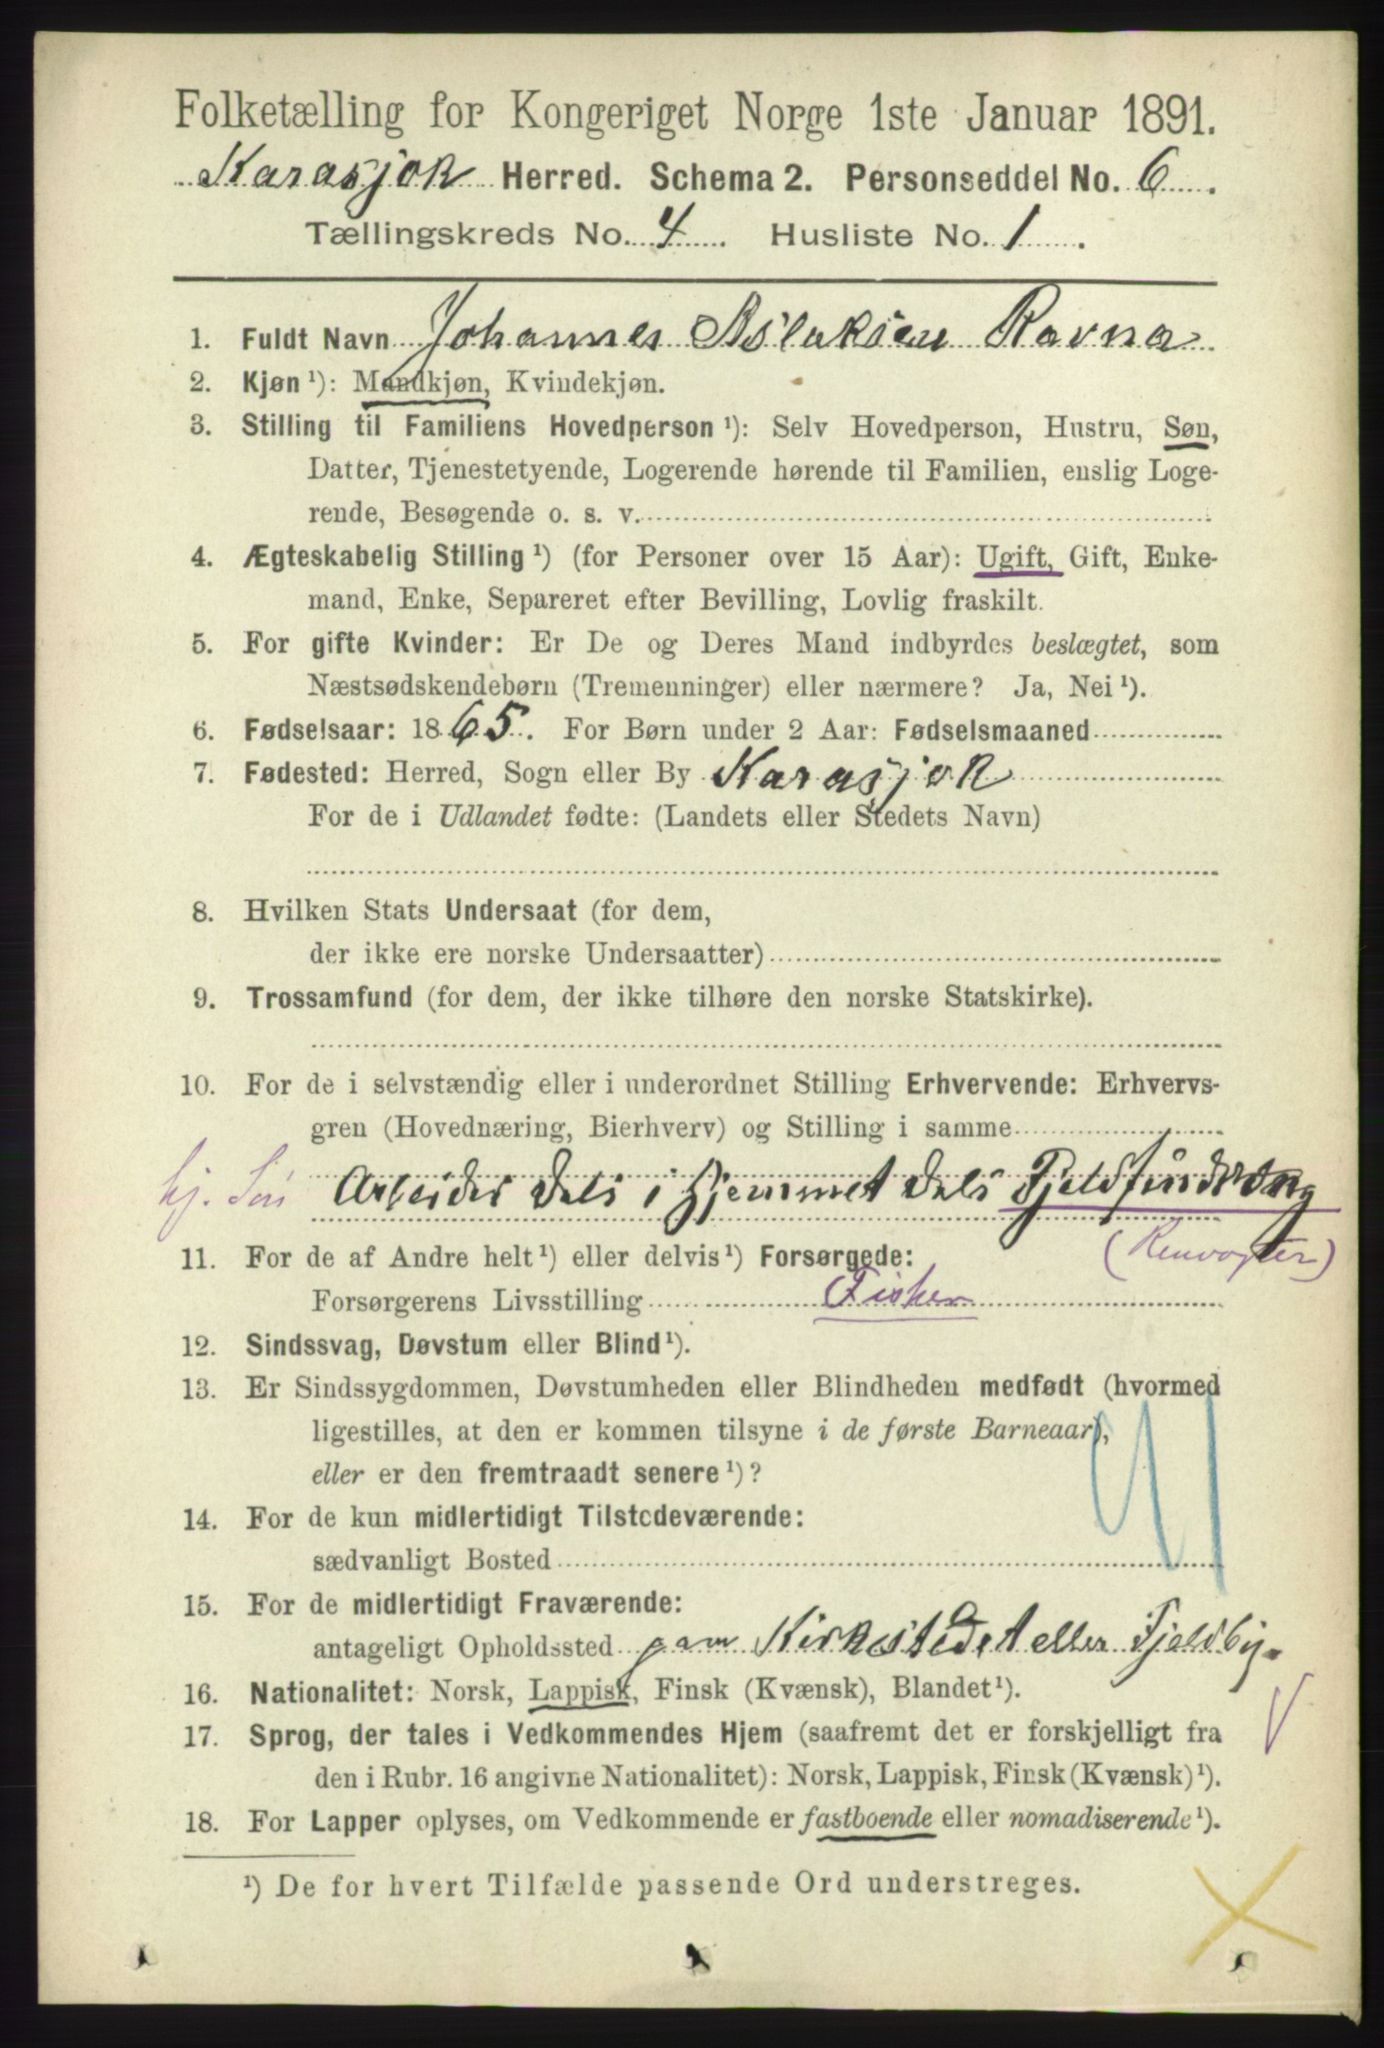 Folketælling for Kongeriget Norge 1ste Januar 1891.
Karasjok Herred. Schema 2. Personseddel No. 6.
Tællingskreds No. 4. Husliste No. 1.
1. Fuldt Navn Johannes Aslaksen Ravna
2. Kjøn ¹): Mandkjøn, Kvindekjøn.
3. Stilling til Familiens Hovedperson ¹): Selv Hovedperson, Hustru, Søn,
Datter, Tjenestetyende, Logerende hørende til Familien, enslig Loge-
rende, Besøgende o. s. v.
4. Ægteskabelig Stilling ¹) (for Personer over 15 Aar): Ugift, Gift, Enke-
mand, Enke, Separeret efter Bevilling, Lovlig fraskilt.
5. For gifte Kvinder: Er De og Deres Mand indbyrdes beslægtet, som
Næstsødskendebørn (Tremenninger) eller nærmere? Ja, Nei ¹).
6. Fødselsaar: 1865. For Børn under 2 Aar: Fødselsmaaned
7. Fødested: Herred, Sogn eller By Karasjok
For de i Udlandet fødte: (Landets eller Stedets Navn)
8. Hvilken Stats Undersaat (for dem,
der ikke ere norske Undersaatter)
9. Trossamfund (for dem, der ikke tilhøre den norske Statskirke).
10. For de i selvstændig eller i underordnet Stilling Erhvervende: Erhvervs-
gren (Hovednæring, Bierhverv) og Stilling i samme
hj. Søn Arbeider dels i hjemmet dels
(Renvogter)
11. For de af Andre helt ¹) eller delvis ¹) Forsørgede:
Forsørgerens Livsstilling Fisker
12. Sindssvag, Døvstum eller Blind ¹).
13. Er Sindssygdommen, Døvstumheden eller Blindheden medfødt (hvormed
ligestilles, at den er kommen tilsyne i de første Barneaar),
eller er den fremtraadt senere ¹)?
14. For de kun midlertidigt Tilstedeværende:
sædvanligt Bosted
15. For de midlertidigt Fraværende:
antageligt Opholdssted paa Kirkestedet eller Fjeldby.
16. Nationalitet: Norsk, Lappisk, Finsk (Kvænsk), Blandet ¹).
17. Sprog, der tales i Vedkommendes Hjem (saafremt det er forskjelligt fra
den i Rubr. 16 angivne Nationalitet): Norsk, Lappisk, Finsk (Kvænsk) ¹).
18. For Lapper oplyses, om Vedkommende er fastboende eller nomadiserende ¹).
¹) De for hvert Tilfælde passende Ord understreges.